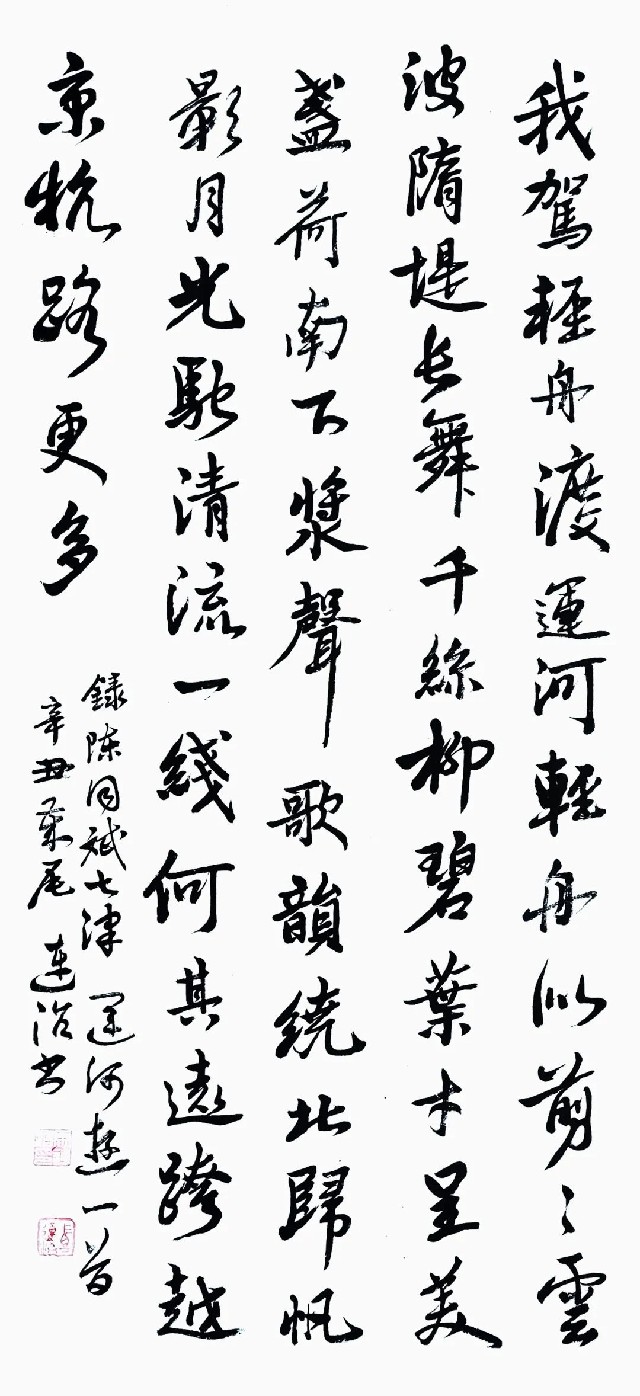 我駕輕舟渡運河輕舟似剪〻雲
波隋堤长舞千絲柳碧葉才呈美
盞荷南下漿聲歌韻绕北歸帆
影月光馳清流一綫何其遠跨越
京杭路更多
錄陳同斌七律運河遊一首
辛丑歲尾連治书